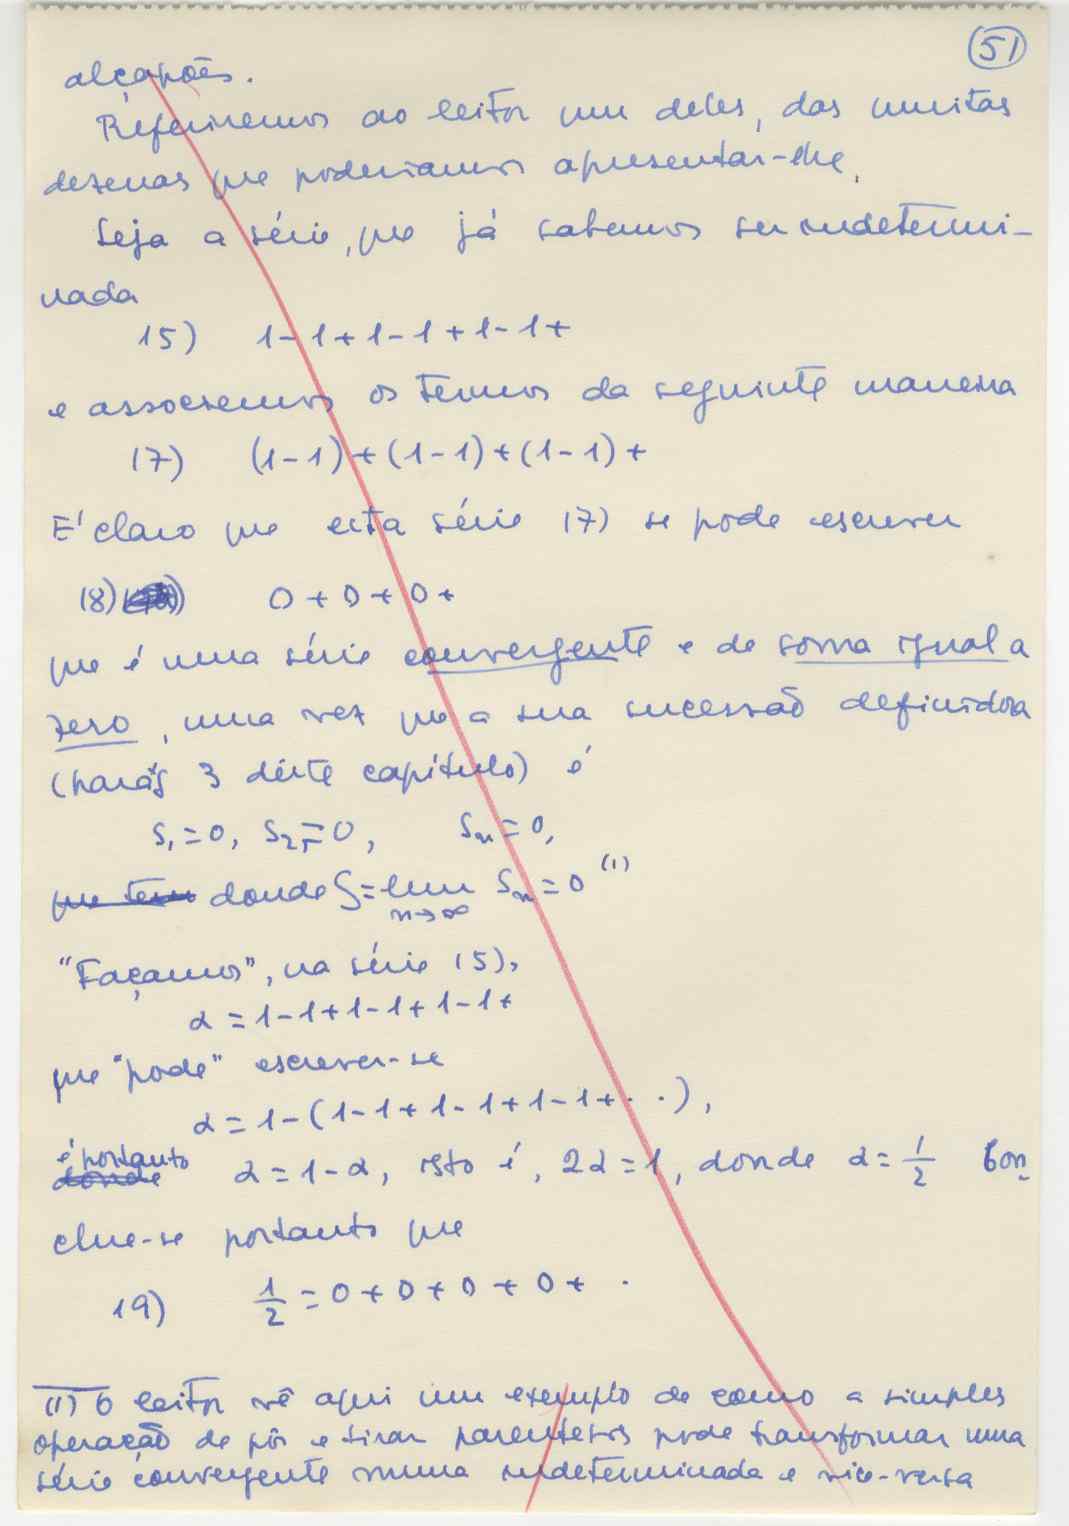 51
alçapões.
Referiremos ao leitor um deles, das muitas
dezenas que poderíamos apresentar-lhe.
Seja a série, que já sabemos ser indetermi-
nada
15) 1-1+1-1+1-1+
e associemos os termos da seguinte maneira
17) (1-1)+(1-1)+(1-1)+
E' claro que esta série 17) se pode escrever
18) 0+0+0+
que é uma série convergente e de soma igual a
zero, uma vez que a sua sucessão definidora
(parág 3 dêste capítulo) é
S₁=0, S₂=0, Sₙ=0,
que tem donde S=lim Sₙ=0 (1)
n→∞
"Façamos", na série 15),
α=1-1+1-1+1-1+
que "pode" escrever-se
α=1-(1-1+1-1+1-1+..),
é portanto
donde α=1-α, isto é, 2α=1, donde α=1/2 Con
clue-se portanto que
19) 1/2=0+0+0+0+ .
(1) O leitor vê aqui um exemplo de como a simples
operação de pôr e tirar parentesis pode transformar uma
série convergente numa indeterminada e vice-versa